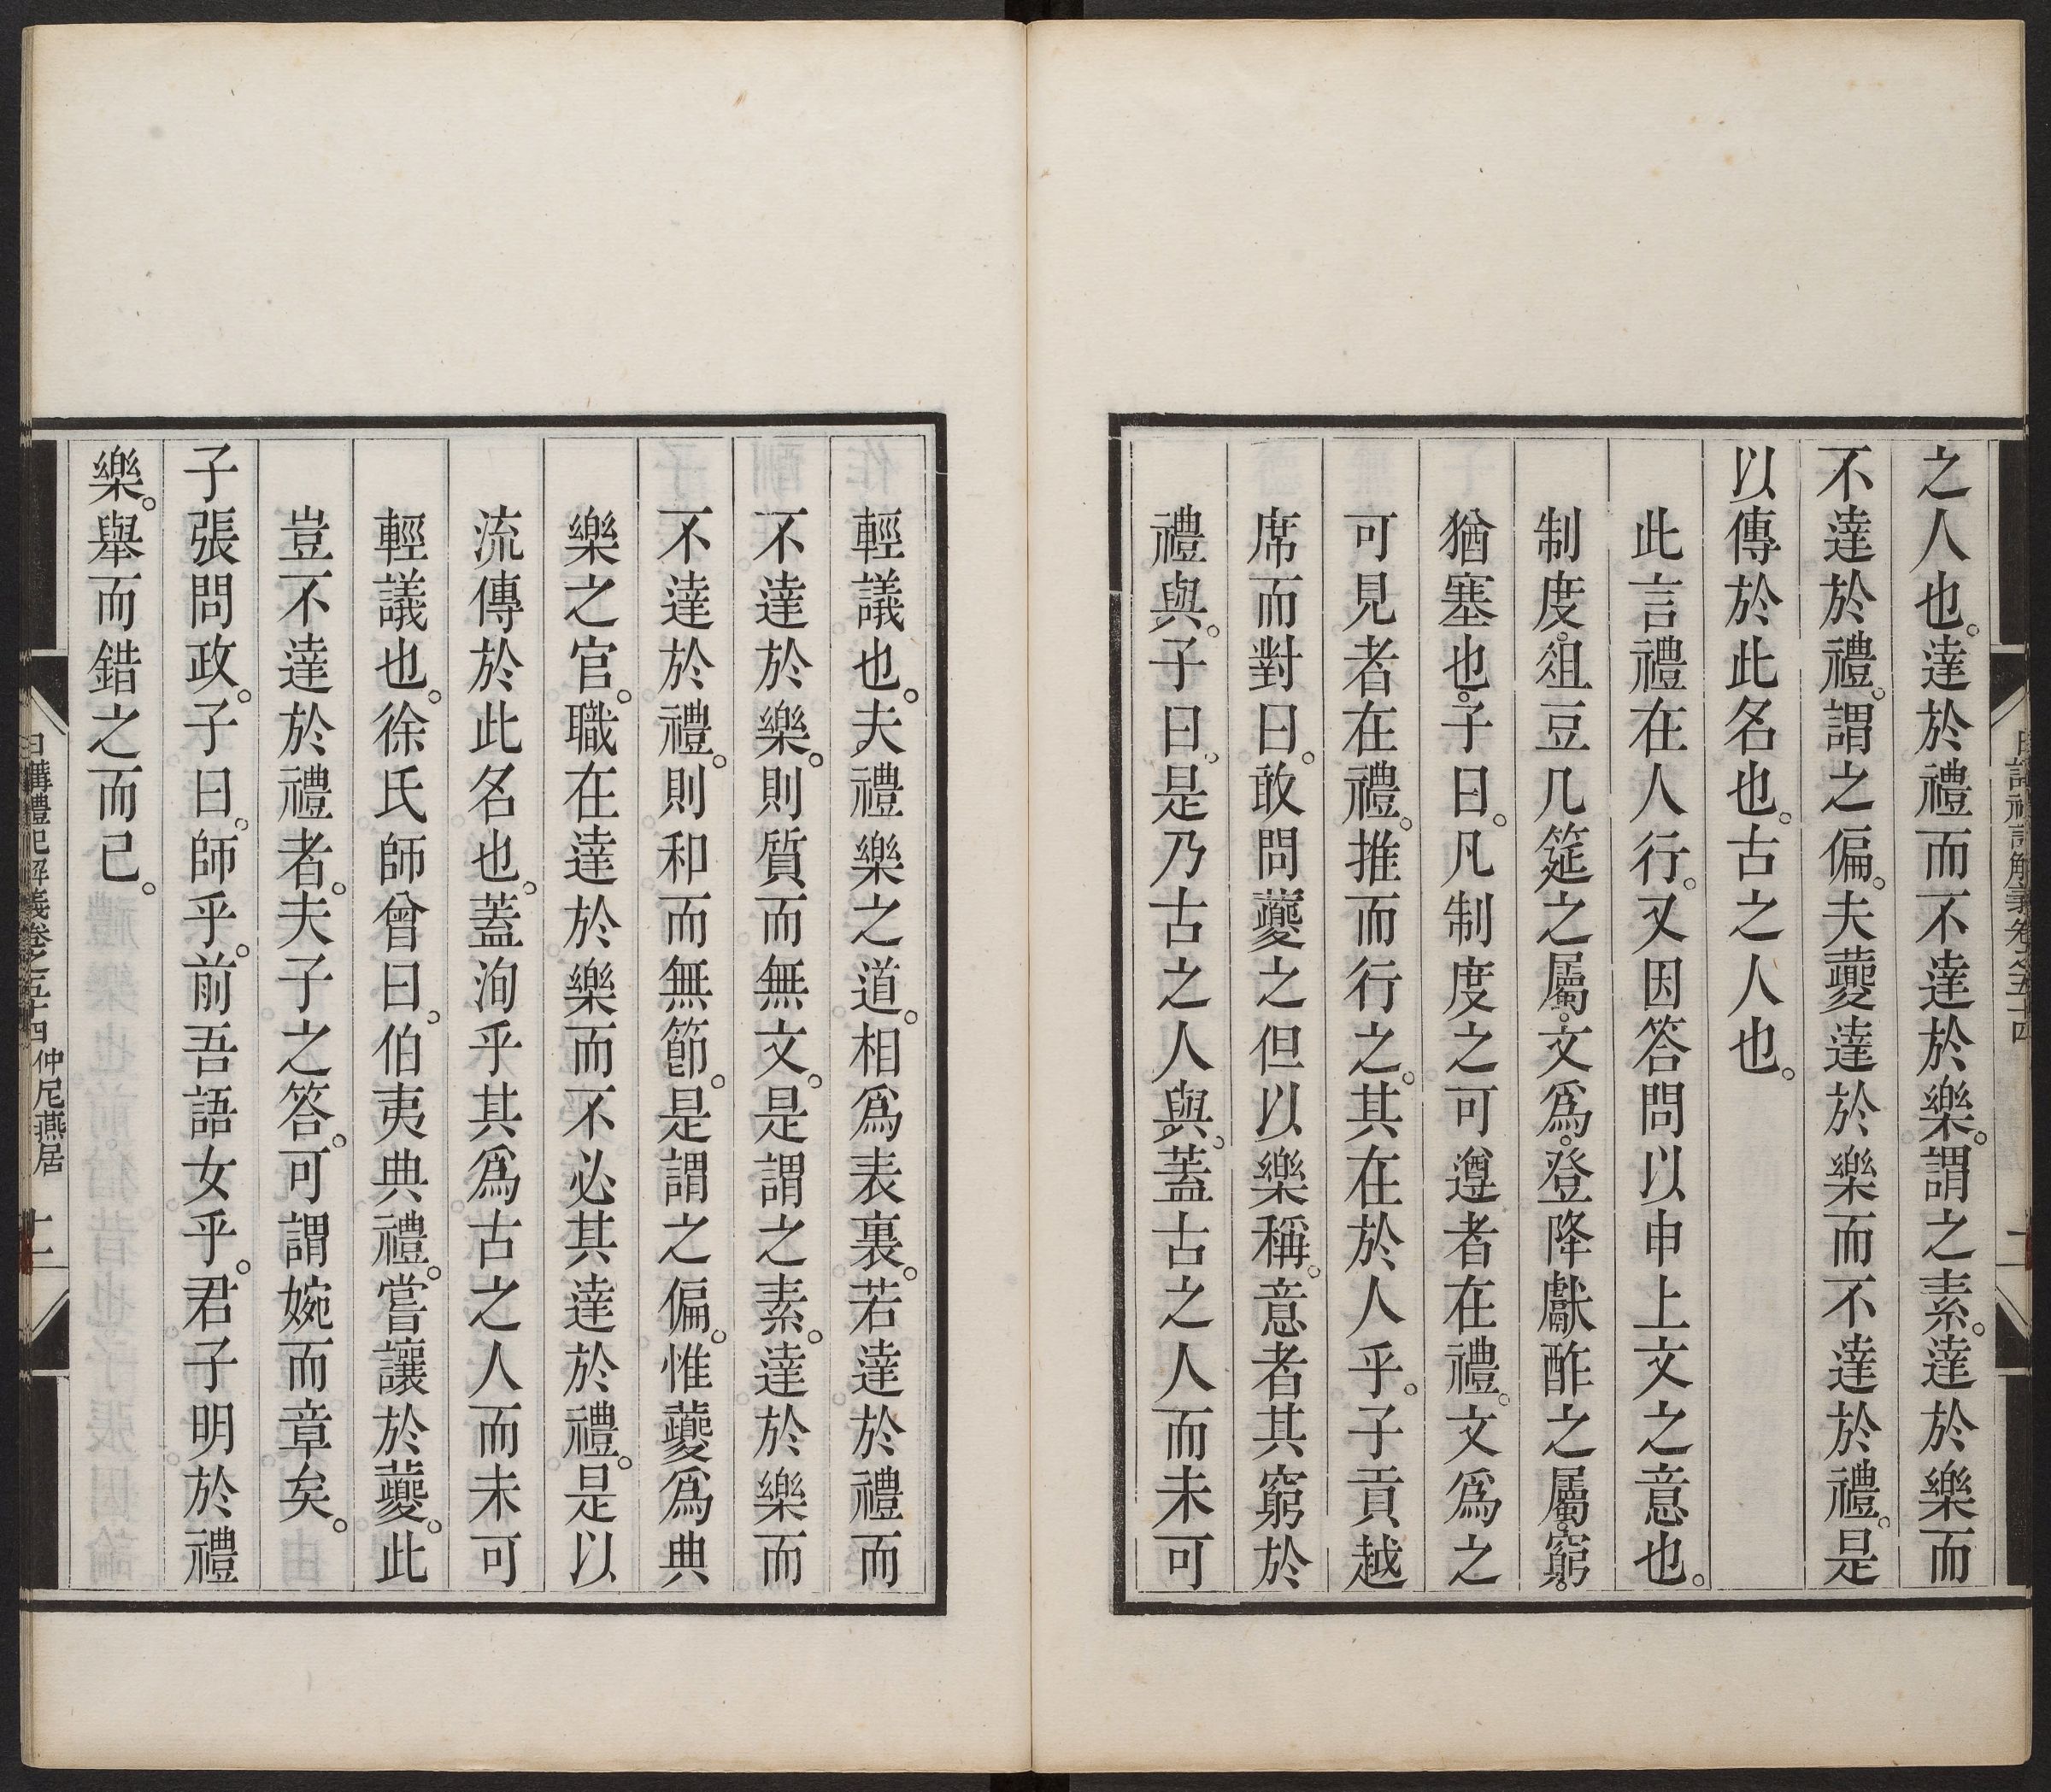 之人也。達於禮而不達於樂。謂之素。達於樂而
不達於禮。謂之偏。夫夔達於樂而不達於禮。是
以傳於此名也。古之人也。
此言禮在人行。又因答問以申上文之意也。
制度。俎豆几筵之屬。文爲。登降獻酢之屬。窮。
猶塞也。子曰。凡制度之可遵者在禮。文爲之
可見者在禮。推而行之。其在於人乎。子貢越
席而對曰。敢問夔之但以樂稱。意者其窮於
禮與。子曰。是乃古之人與。蓋古之人而未可
輕議也。夫禮樂之道。相爲表裏。若達於禮而
不達於樂。則質而無文。是謂之素。達於樂而
不達於禮。則和而無節。是謂之偏。惟夔爲典
樂之官。職在達於樂而不必其達於禮。是以
流傳於此名也。蓋洵乎其爲古之人而未可
輕議也。徐氏師曾曰。伯夷典禮。嘗讓於夔。此
豈不達於禮者。夫子之答。可謂婉而章矣。
子張問政。子曰。師乎。前吾語女乎。君子明於禮
樂。舉而錯之而已。
日講禮記解義卷之五十四 仲尼燕居 十一